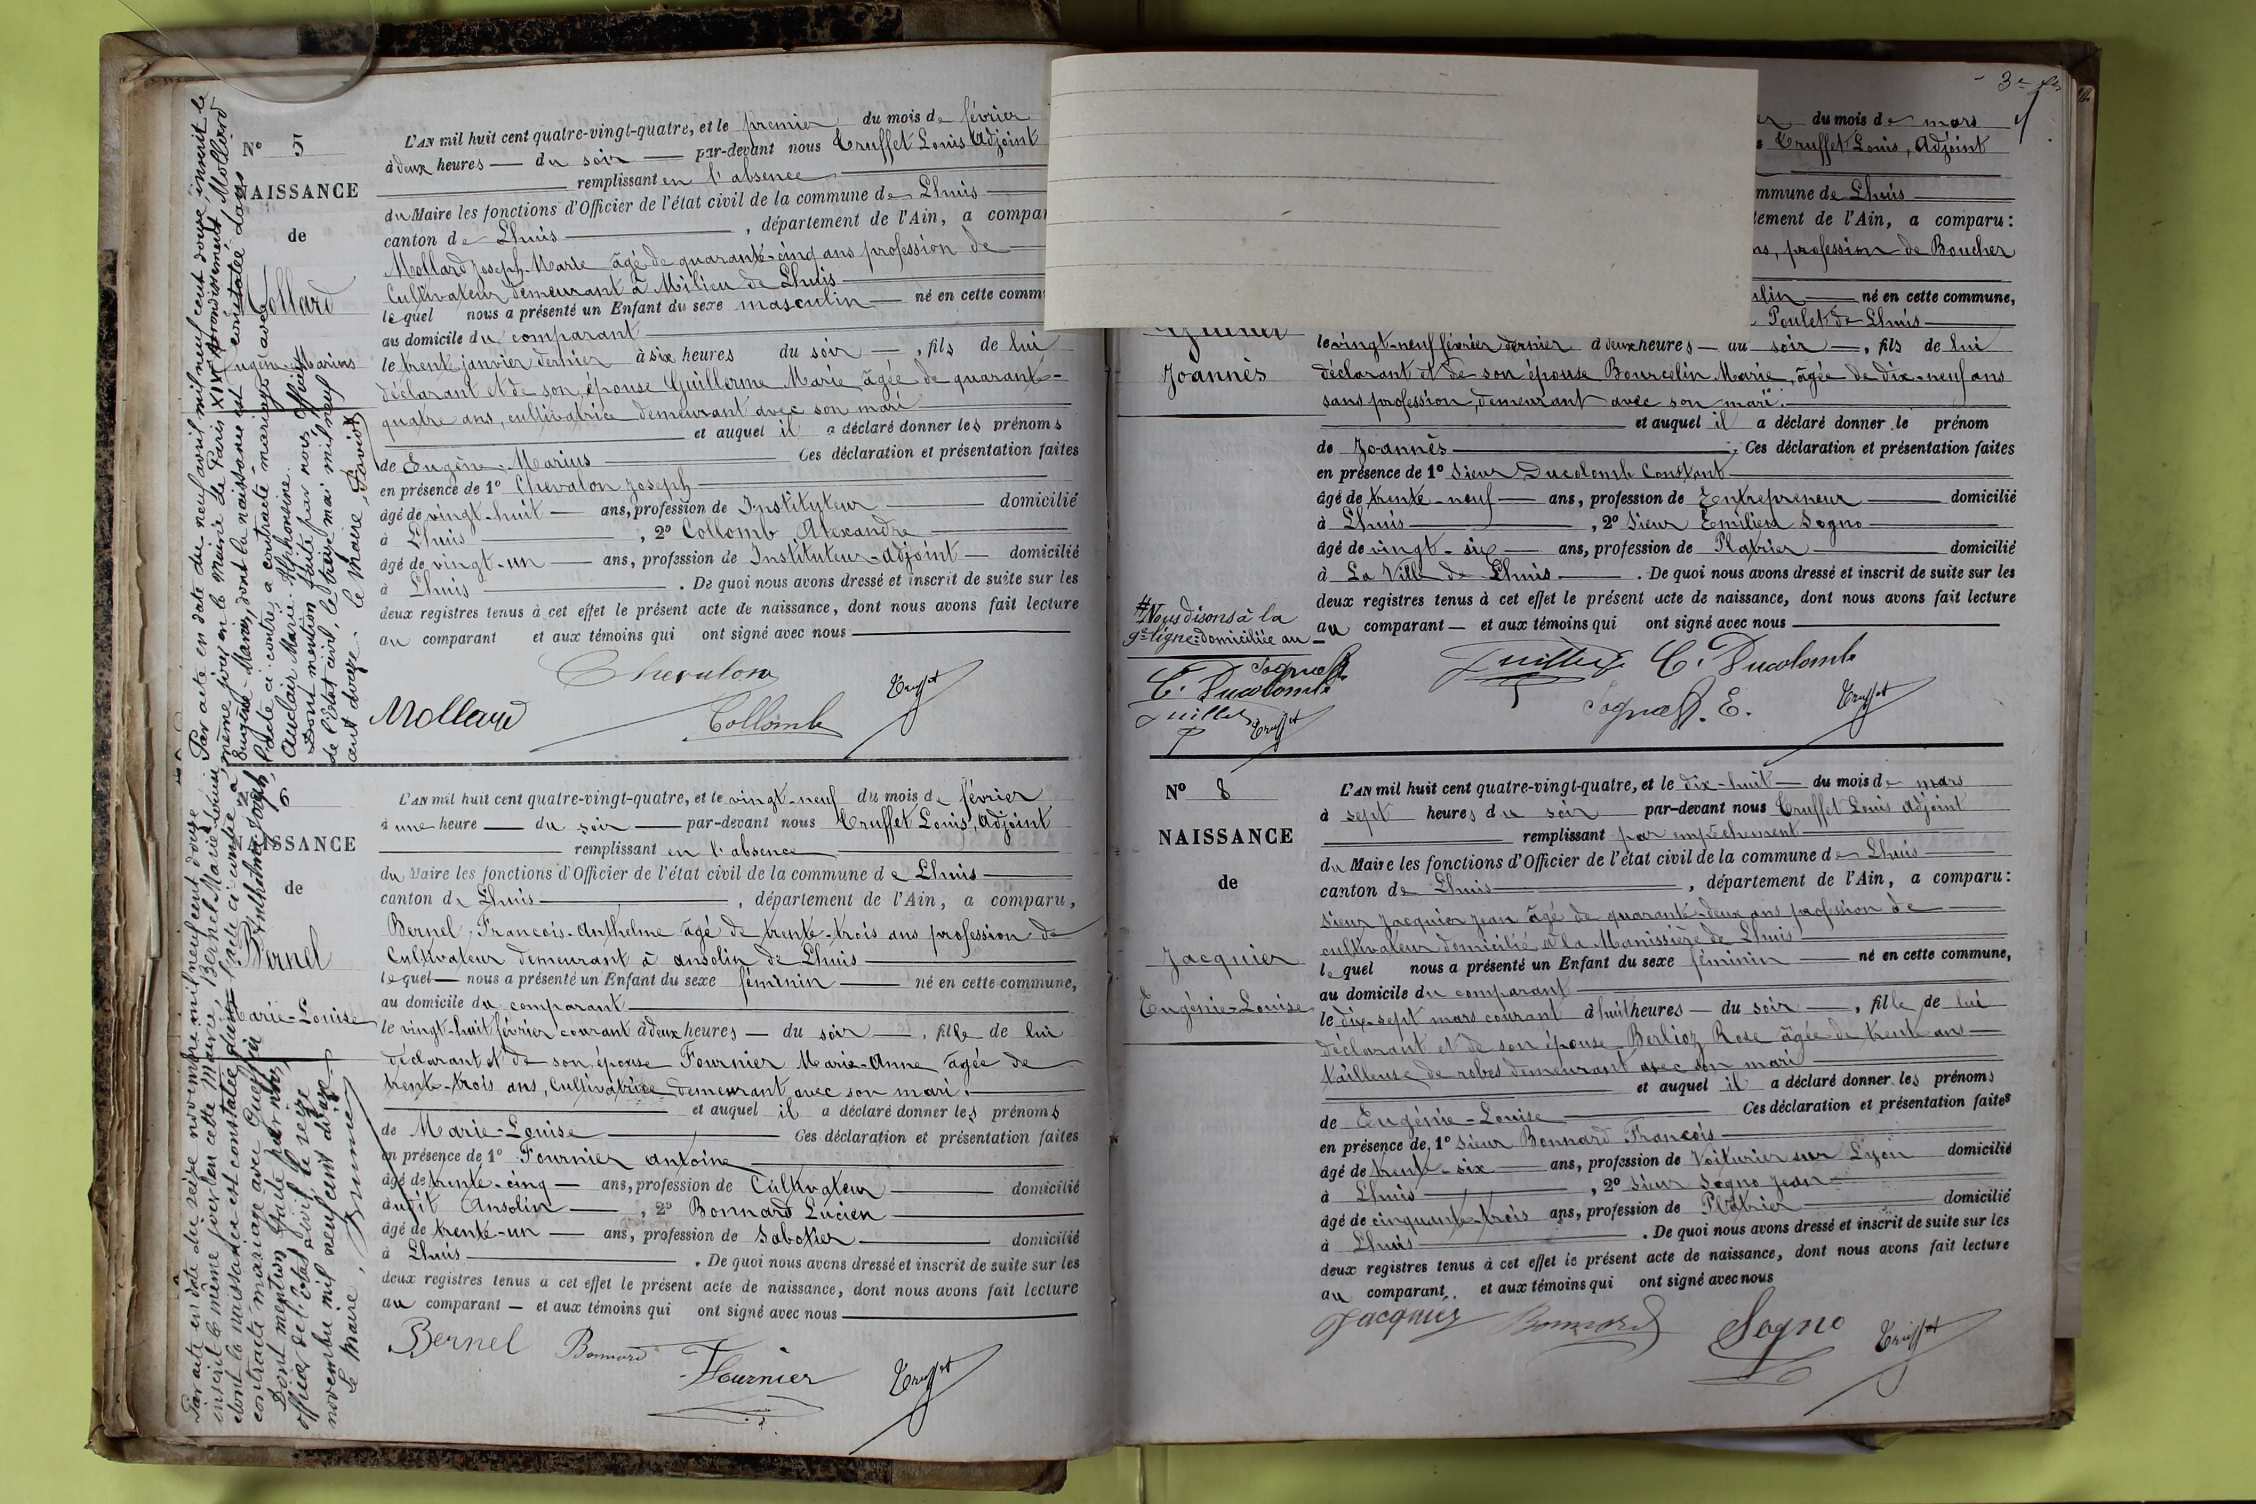 N° 5
NAISSANCE
de
Mollard
Eugène-Marius
Par acte en date du neuf avril mil neuf cent douze, inscrit le
même jour en la mairie de Paris XIX arrondissement Mollard
Eugène Marius, dont la naissance est constatée dans
l'acte ci contre, a contracté mariage avec
Auclair Marie-Alphonsine.
Dont mention faite par nous officier
de l'Etat civil, le treize mai mil neuf
cent douze. Le Maire,
L'AN mil huit cent quatre-vingt-quatre, et le premier du mois de février
à deux heures du soir par-devant nous Truffet Louis Adjoint
remplissant en l'absence
du Maire les fonctions d'Officier de l'état civil de la commune de Lhuis
canton de Lhuis, département de l'Ain, a compar
Mollard Joseph-Marie âgé de quarante-cinq ans profession de
Cultivateur demeurant à Milieu de Lhuis
lequel nous a présenté un Enfant du sexe masculin né en cette comm
au domicile du comparant
le trente janvier dernier à six heures du soir, fils de lui
déclarant et de son épouse Guillerme Marie âgée de quarante-
quatre ans, cultivatrice demeurant avec son mari
et auquel il a déclaré donner les prénoms
de Eugène-Marius Ces déclaration et présentation faites
en présence de 1° Chevalon Joseph
âgé de vingt-huit ans, profession de Instituteur domicilié
à Lhuis, 2° Collomb Alexandre
âgé de vingt-un ans, profession de Instituteur-adjoint domicilié
à Lhuis. De quoi nous avons dressé et inscrit de suite sur les
deux registres tenus à cet effet le présent acte de naissance, dont nous avons fait lecture
au comparant et aux témoins qui ont signé avec nous
Chevalon
Mollard Collomb Truffet
N° 6
NAISSANCE
de
Bernel
Marie-Louise
Par acte en date du seize novembre mil neuf cent douze
inscrit le même jour en cette mairie, Bernel Marie Louise
dont la naissance est constatée dans l'acte ci contre a
contracté mariage avec Anthelme Joseph
Dont mention faite par nous
officier de l'état civil le seize
novembre mil neuf cent douze
Le Maire,
L'AN mil huit cent quatre-vingt-quatre, et le vingt-neuf du mois de février
à une heure du soir par-devant nous Truffet Louis, Adjoint
remplissant en l'absence
du Maire les fonctions d'Officier de l'état civil de la commune de Lhuis
canton de Lhuis, département de l'Ain, a comparu,
Bernel, François-Anthelme âgé de trente-trois ans profession de
Cultivateur demeurant à ansolin de Lhuis
lequel nous a présenté un Enfant du sexe féminin né en cette commune,
au domicile du comparant
le vingt-huit février courant à deux heures du soir, fille de lui
déclarant et de son épouse Fournier Marie-Anne âgée de
trente-trois ans, Cultivatrice demeurant avec son mari.
et auquel il a déclaré donner les prénoms
de Marie-Louise Ces déclaration et présentation faites
en présence de 1° Fournier antoine
âgé de trente-cinq ans, profession de Cultivateur domicilié
audit Ansolin, 2° Bonnard Lucien
âgé de trente-un ans, profession de Sabotier domicilié
à Lhuis. De quoi nous avons dressé et inscrit de suite sur les
deux registres tenus à cet effet le présent acte de naissance, dont nous avons fait lecture
au comparant et aux témoins qui ont signé avec nous
Bernel Bonnard Fournier Truffet
3
du mois de mars
Truffet Louis, Adjoint
mmune de Lhuis
tement de l'Ain, a comparu:
ns, profession de Boucher
ulin né en cette commune,
Poulet de Lhuis
Joannès
le vingt-neuf février dernier à deux heures au soir, fils de lui
déclarant et de son épouse Bourcelin Marie, âgée de dix-neuf ans
sans profession, demeurant avec son mari.
et auquel il a déclaré donner le prénom
de Joannès. Ces déclaration et présentation faites
en présence de 1° Sieur Ducolomb Constant
âgé de trente-neuf ans, profession de Entrepreneur domicilié
à Lhuis, 2° Sieur Emilien Sogno
âgé de vingt-six ans, profession de Platrier domicilié
à La Ville de Lhuis. De quoi nous avons dressé et inscrit de suite sur les
deux registres tenus à cet effet le présent acte de naissance, dont nous avons fait lecture
au comparant et aux témoins qui ont signé avec nous
# Nous disons à la
9e ligne: domiciliée au
Sogno E.
C. Ducolomb
Juillet Truffet
Juillet C. Ducolomb
Sogno E. Truffet
N° 8
NAISSANCE
de
Jacquier
Eugénie-Louise
L'AN mil huit cent quatre-vingt-quatre, et le dix-huit du mois de mars
à sept heures du soir par-devant nous Truffet Louis adjoint
remplissant par empêchement
du Maire les fonctions d'Officier de l'état civil de la commune de Lhuis
canton de Lhuis, département de l'Ain, a comparu:
Sieur Jacquier Jean âgé de quarante-deux ans profession de
cultivateur domicilié à la Manissière de Lhuis
lequel nous a présenté un Enfant du sexe féminin né en cette commune,
au domicile du comparant
le dix-sept mars courant à huit heures du soir, fille de lui
déclarant et de son épouse Berlioz Rose âgée de trente ans
tailleuse de robes demeurant avec son mari
et auquel il a déclaré donner les prénoms
de Eugénie-Louise Ces déclaration et présentation faites
en présence de, 1° Sieur Bonnard François
âgé de trente-six ans, profession de Voiturier sur Lyon domicilié
à Lhuis, 2° Sieur Sogno Jean
âgé de cinquante-trois ans, profession de Platrier domicilié
à Lhuis. De quoi nous avons dressé et inscrit de suite sur les
deux registres tenus à cet effet le présent acte de naissance, dont nous avons fait lecture
au comparant et aux témoins qui ont signé avec nous
Jacquier Bonnard Sogno Truffet